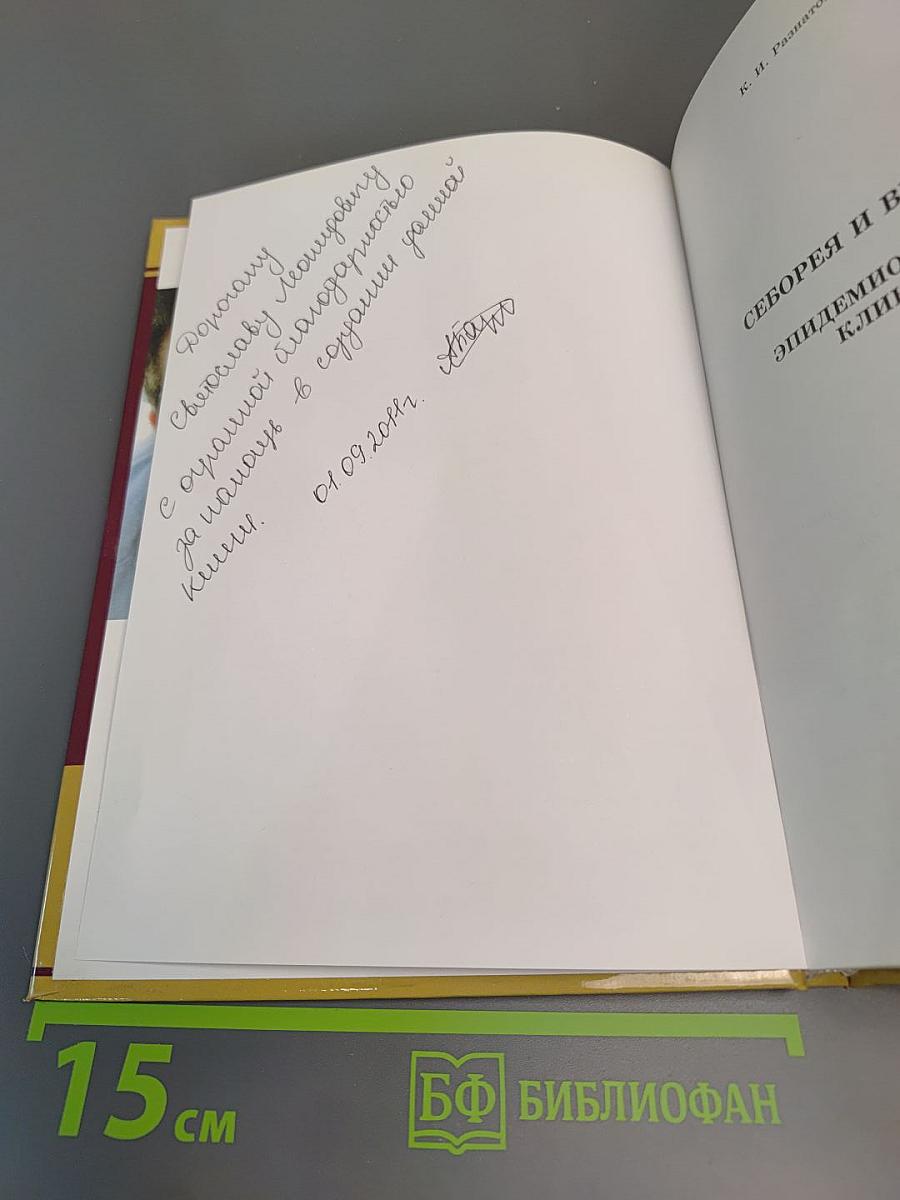 Дорогому
Святославу Леонидовичу
с огромной благодарностью
за помощь в создании данной
книги.
01.09.2011г.
К. И. Разнато
СЕБОРЕЯ И В
ЭПИДЕМИО
КЛИ
15 см
БФ БИБЛИОФАН